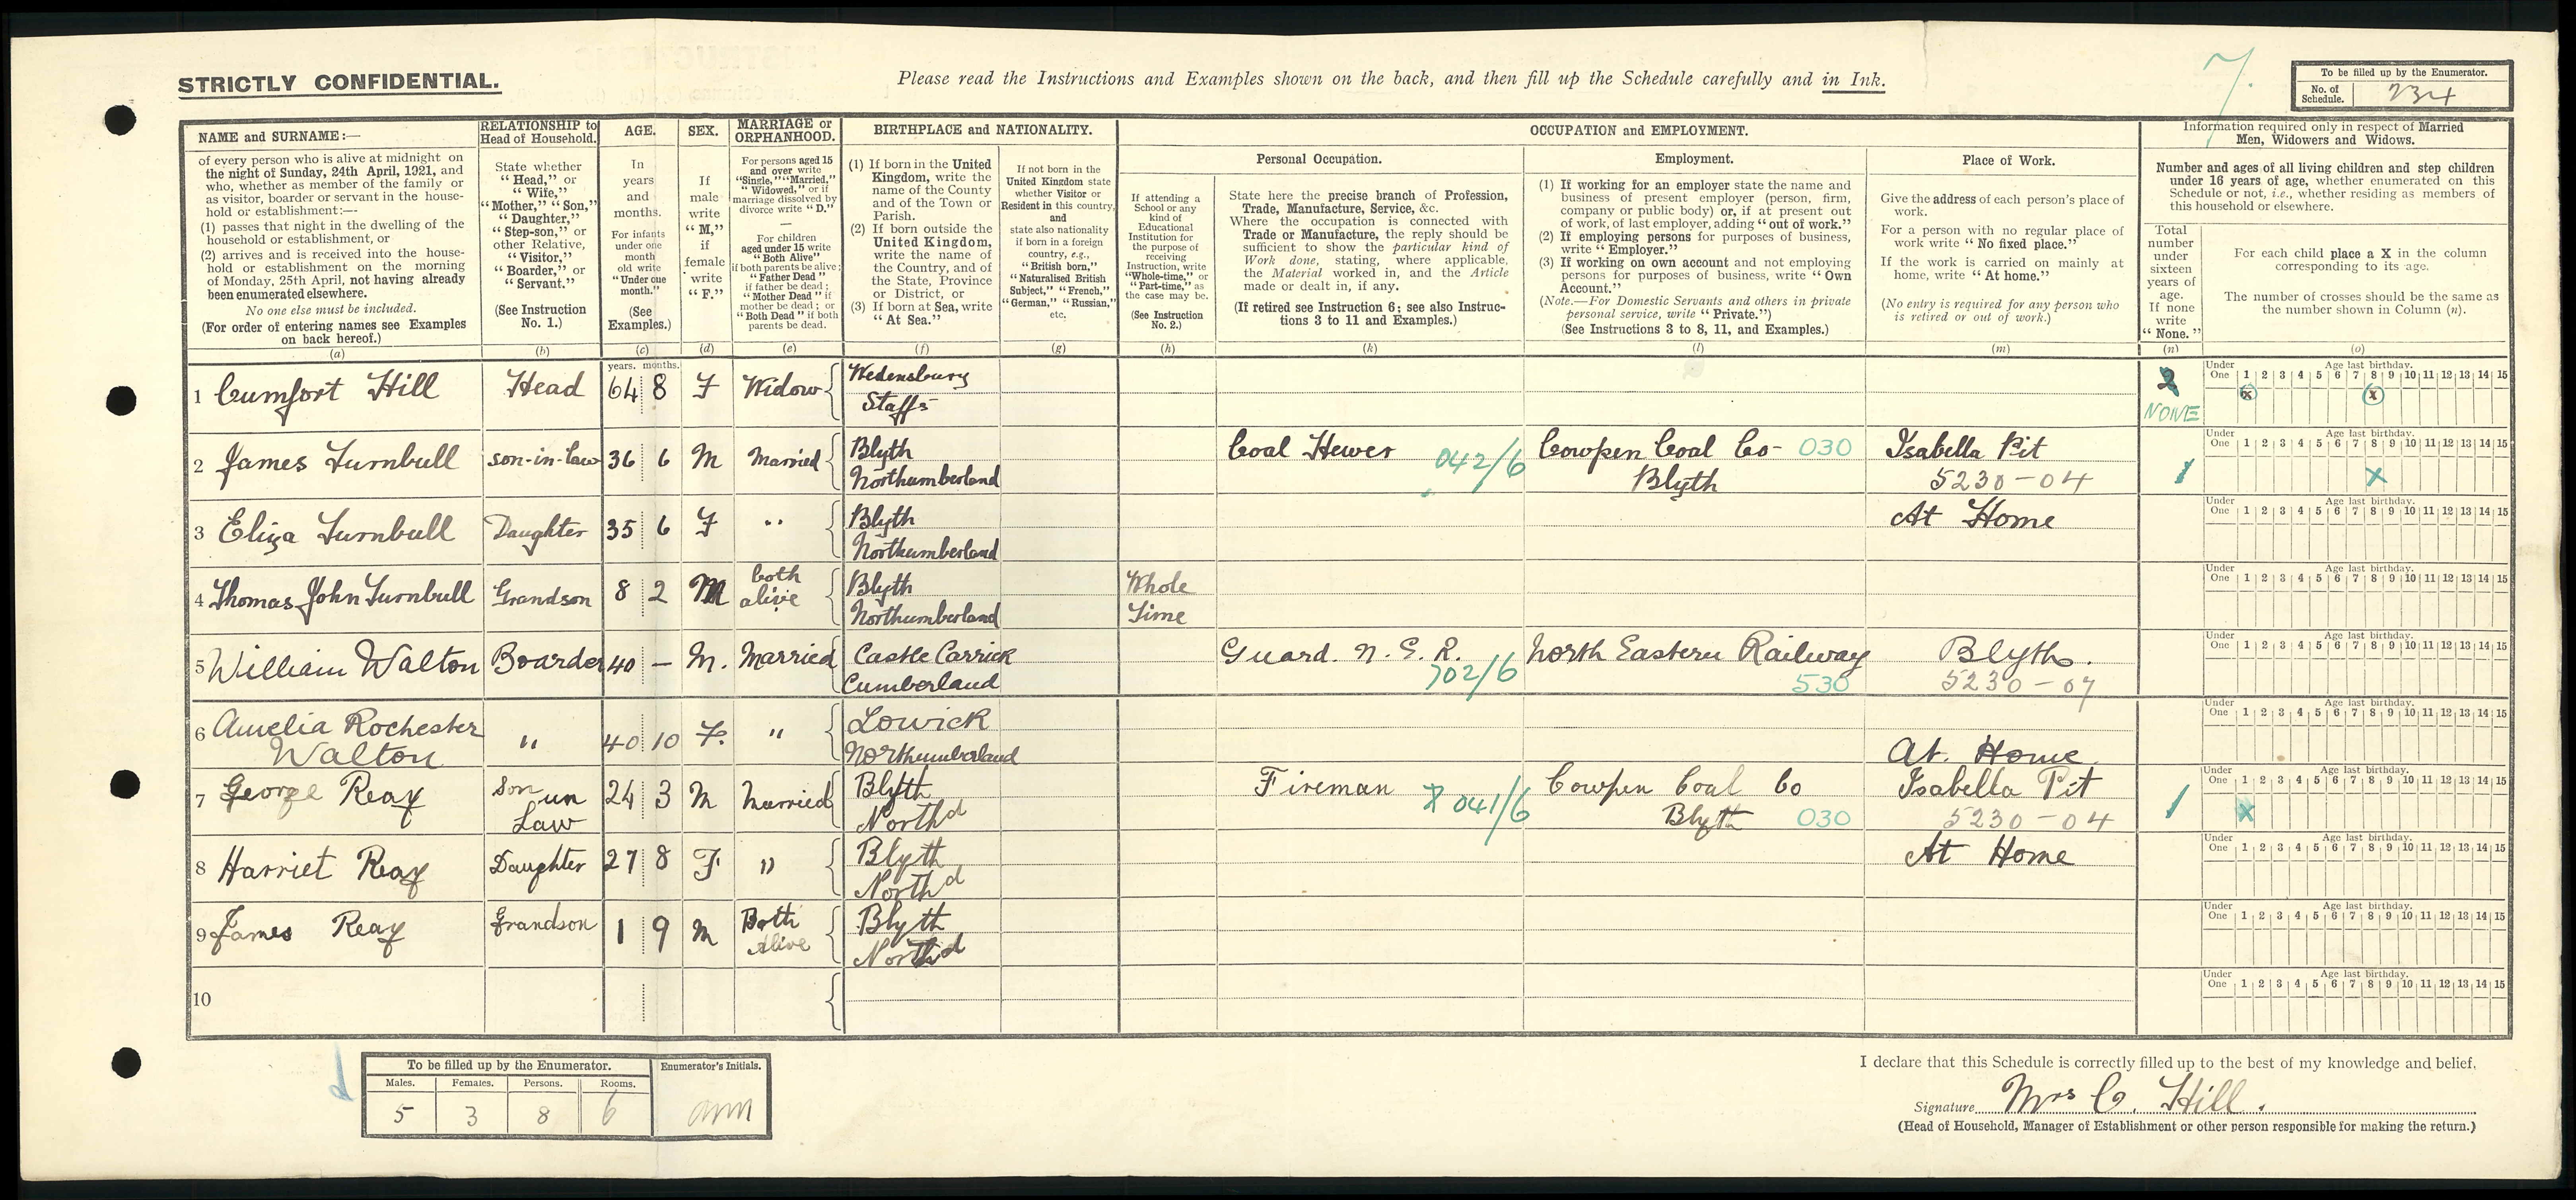 STRICTLY CONFIDENTIAL.
Please read the Instructions and Examples shown on the back, and then fill up the Schedule carefully and in Ink.
7.
To be filled up by the Enumerator.
No. of Schedule. 234
NAME and SURNAME:—
of every person who is alive at midnight on
the night of Sunday, 24th April, 1921, and
who, whether as member of the family or
as visitor, boarder or servant in the house-
hold or establishment:—
(1) passes that night in the dwelling of the
household or establishment, or
(2) arrives and is received into the house-
hold or establishment on the morning
of Monday, 25th April, not having already
been enumerated elsewhere.
No one else must be included.
(For order of entering names see Examples
on back hereof.)
(a)
RELATIONSHIP to
Head of Household.
State whether
"Head," or
"Wife,"
"Mother," "Son,"
"Daughter,"
"Step-son," or
other Relative,
"Visitor,"
"Boarder," or
"Servant."
(See Instruction
No. 1.)
(b)
AGE.
In
years
and
months.
For infants
under one
month
old write
"Under one
month."
(See
Examples.)
(c)
SEX.
If
male
write
"M,"
if
female
write
"F."
(d)
MARRIAGE or
ORPHANHOOD.
For persons aged 15
and over write
"Single," "Married,"
"Widowed," or if
marriage dissolved by
divorce write "D."
For children
aged under 15 write
"Both Alive"
if both parents be alive;
"Father Dead"
if father be dead;
"Mother Dead" if
mother be dead; or
"Both Dead" if both
parents be dead.
(e)
BIRTHPLACE and NATIONALITY.
(1) If born in the United
Kingdom, write the
name of the County
and of the Town or
Parish.
(2) If born outside the
United Kingdom,
write the name of
the Country, and of
the State, Province
or District, or
(3) If born at Sea, write
"At Sea."
(f)
If not born in the
United Kingdom state
whether Visitor or
Resident in this country,
and
state also nationality
if born in a foreign
country, e.g.,
"British born,"
"Naturalised British
Subject," "French,"
"German," "Russian,"
etc.
(g)
OCCUPATION and EMPLOYMENT.
If attending a
School or any
kind of
Educational
Institution for
the purpose of
receiving
Instruction, write
"Whole-time," or
"Part-time," as
the case may be.
(See Instruction
No. 2.)
(h)
Personal Occupation.
State here the precise branch of Profession,
Trade, Manufacture, Service, &c.
Where the occupation is connected with
Trade or Manufacture, the reply should be
sufficient to show the particular kind of
Work done, stating, where applicable,
the Material worked in, and the Article
made or dealt in, if any.
(If retired see Instruction 6; see also Instruc-
tions 3 to 11 and Examples.)
(k)
Employment.
(1) If working for an employer state the name and
business of present employer (person, firm,
company or public body) or, if at present out
of work, of last employer, adding "out of work."
(2) If employing persons for purposes of business,
write "Employer."
(3) If working on own account and not employing
persons for purposes of business, write "Own
Account."
(Note.—For Domestic Servants and others in private
personal service, write "Private.")
(See Instructions 3 to 8, 11, and Examples.)
(l)
Place of Work.
Give the address of each person's place of
work.
For a person with no regular place of
work write "No fixed place."
If the work is carried on mainly at
home, write "At home."
(No entry is required for any person who
is retired or out of work.)
(m)
Information required only in respect of Married
Men, Widowers and Widows.
Number and ages of all living children and step children
under 16 years of age, whether enumerated on this
Schedule or not, i.e., whether residing as members of
this household or elsewhere.
Total
number
under
sixteen
years of
age.
If none
write
"None."
(n)
For each child place a X in the column
corresponding to its age.
The number of crosses should be the same as
the number shown in Column (n).
(o)
years. months.
Under One Age last birthday. 1 2 3 4 5 6 7 8 9 10 11 12 13 14 15
1 Cumfort Hill Head 64 8 F Widow Wedensbury Staffs 2 NONE x x
Under One Age last birthday. 1 2 3 4 5 6 7 8 9 10 11 12 13 14 15
2 James Turnbull son-in-law 36 6 M Married Blyth Northumberland Coal Hewer 042/6 Cowpen Coal Co- 030 Blyth Isabella Pit 5230-04 1 x
Under One Age last birthday. 1 2 3 4 5 6 7 8 9 10 11 12 13 14 15
3 Eliza Turnbull Daughter 35 6 F " Blyth Northumberland At Home
Under One Age last birthday. 1 2 3 4 5 6 7 8 9 10 11 12 13 14 15
4 Thomas John Turnbull Grandson 8 2 M both alive Blyth Northumberland Whole Time
Under One Age last birthday. 1 2 3 4 5 6 7 8 9 10 11 12 13 14 15
5 William Walton Boarder 40 — M. Married Castle Carrick Cumberland Guard. N. E. R. 702/6 North Eastern Railway 530 Blyth. 5230-07
Under One Age last birthday. 1 2 3 4 5 6 7 8 9 10 11 12 13 14 15
6 Amelia Rochester Walton " 40 10 F. " Lowick Northumberland At Home.
Under One Age last birthday. 1 2 3 4 5 6 7 8 9 10 11 12 13 14 15
7 George Reay Son un Law 24 3 M Married Blyth North'd Fireman 041/6 Cowpen Coal Co Blyth 030 Isabella Pit 5230-04 1 x
Under One Age last birthday. 1 2 3 4 5 6 7 8 9 10 11 12 13 14 15
8 Harriet Reay Daughter 27 8 F " Blyth North'd At Home
Under One Age last birthday. 1 2 3 4 5 6 7 8 9 10 11 12 13 14 15
9 James Reay Grandson 1 9 M Both Alive Blyth North'd
Under One Age last birthday. 1 2 3 4 5 6 7 8 9 10 11 12 13 14 15
10
To be filled up by the Enumerator.
Males. Females. Persons. Rooms.
5 3 8 6
Enumerator's Initials.
I declare that this Schedule is correctly filled up to the best of my knowledge and belief.
Signature Mrs C. Hill.
(Head of Household, Manager of Establishment or other person responsible for making the return.)